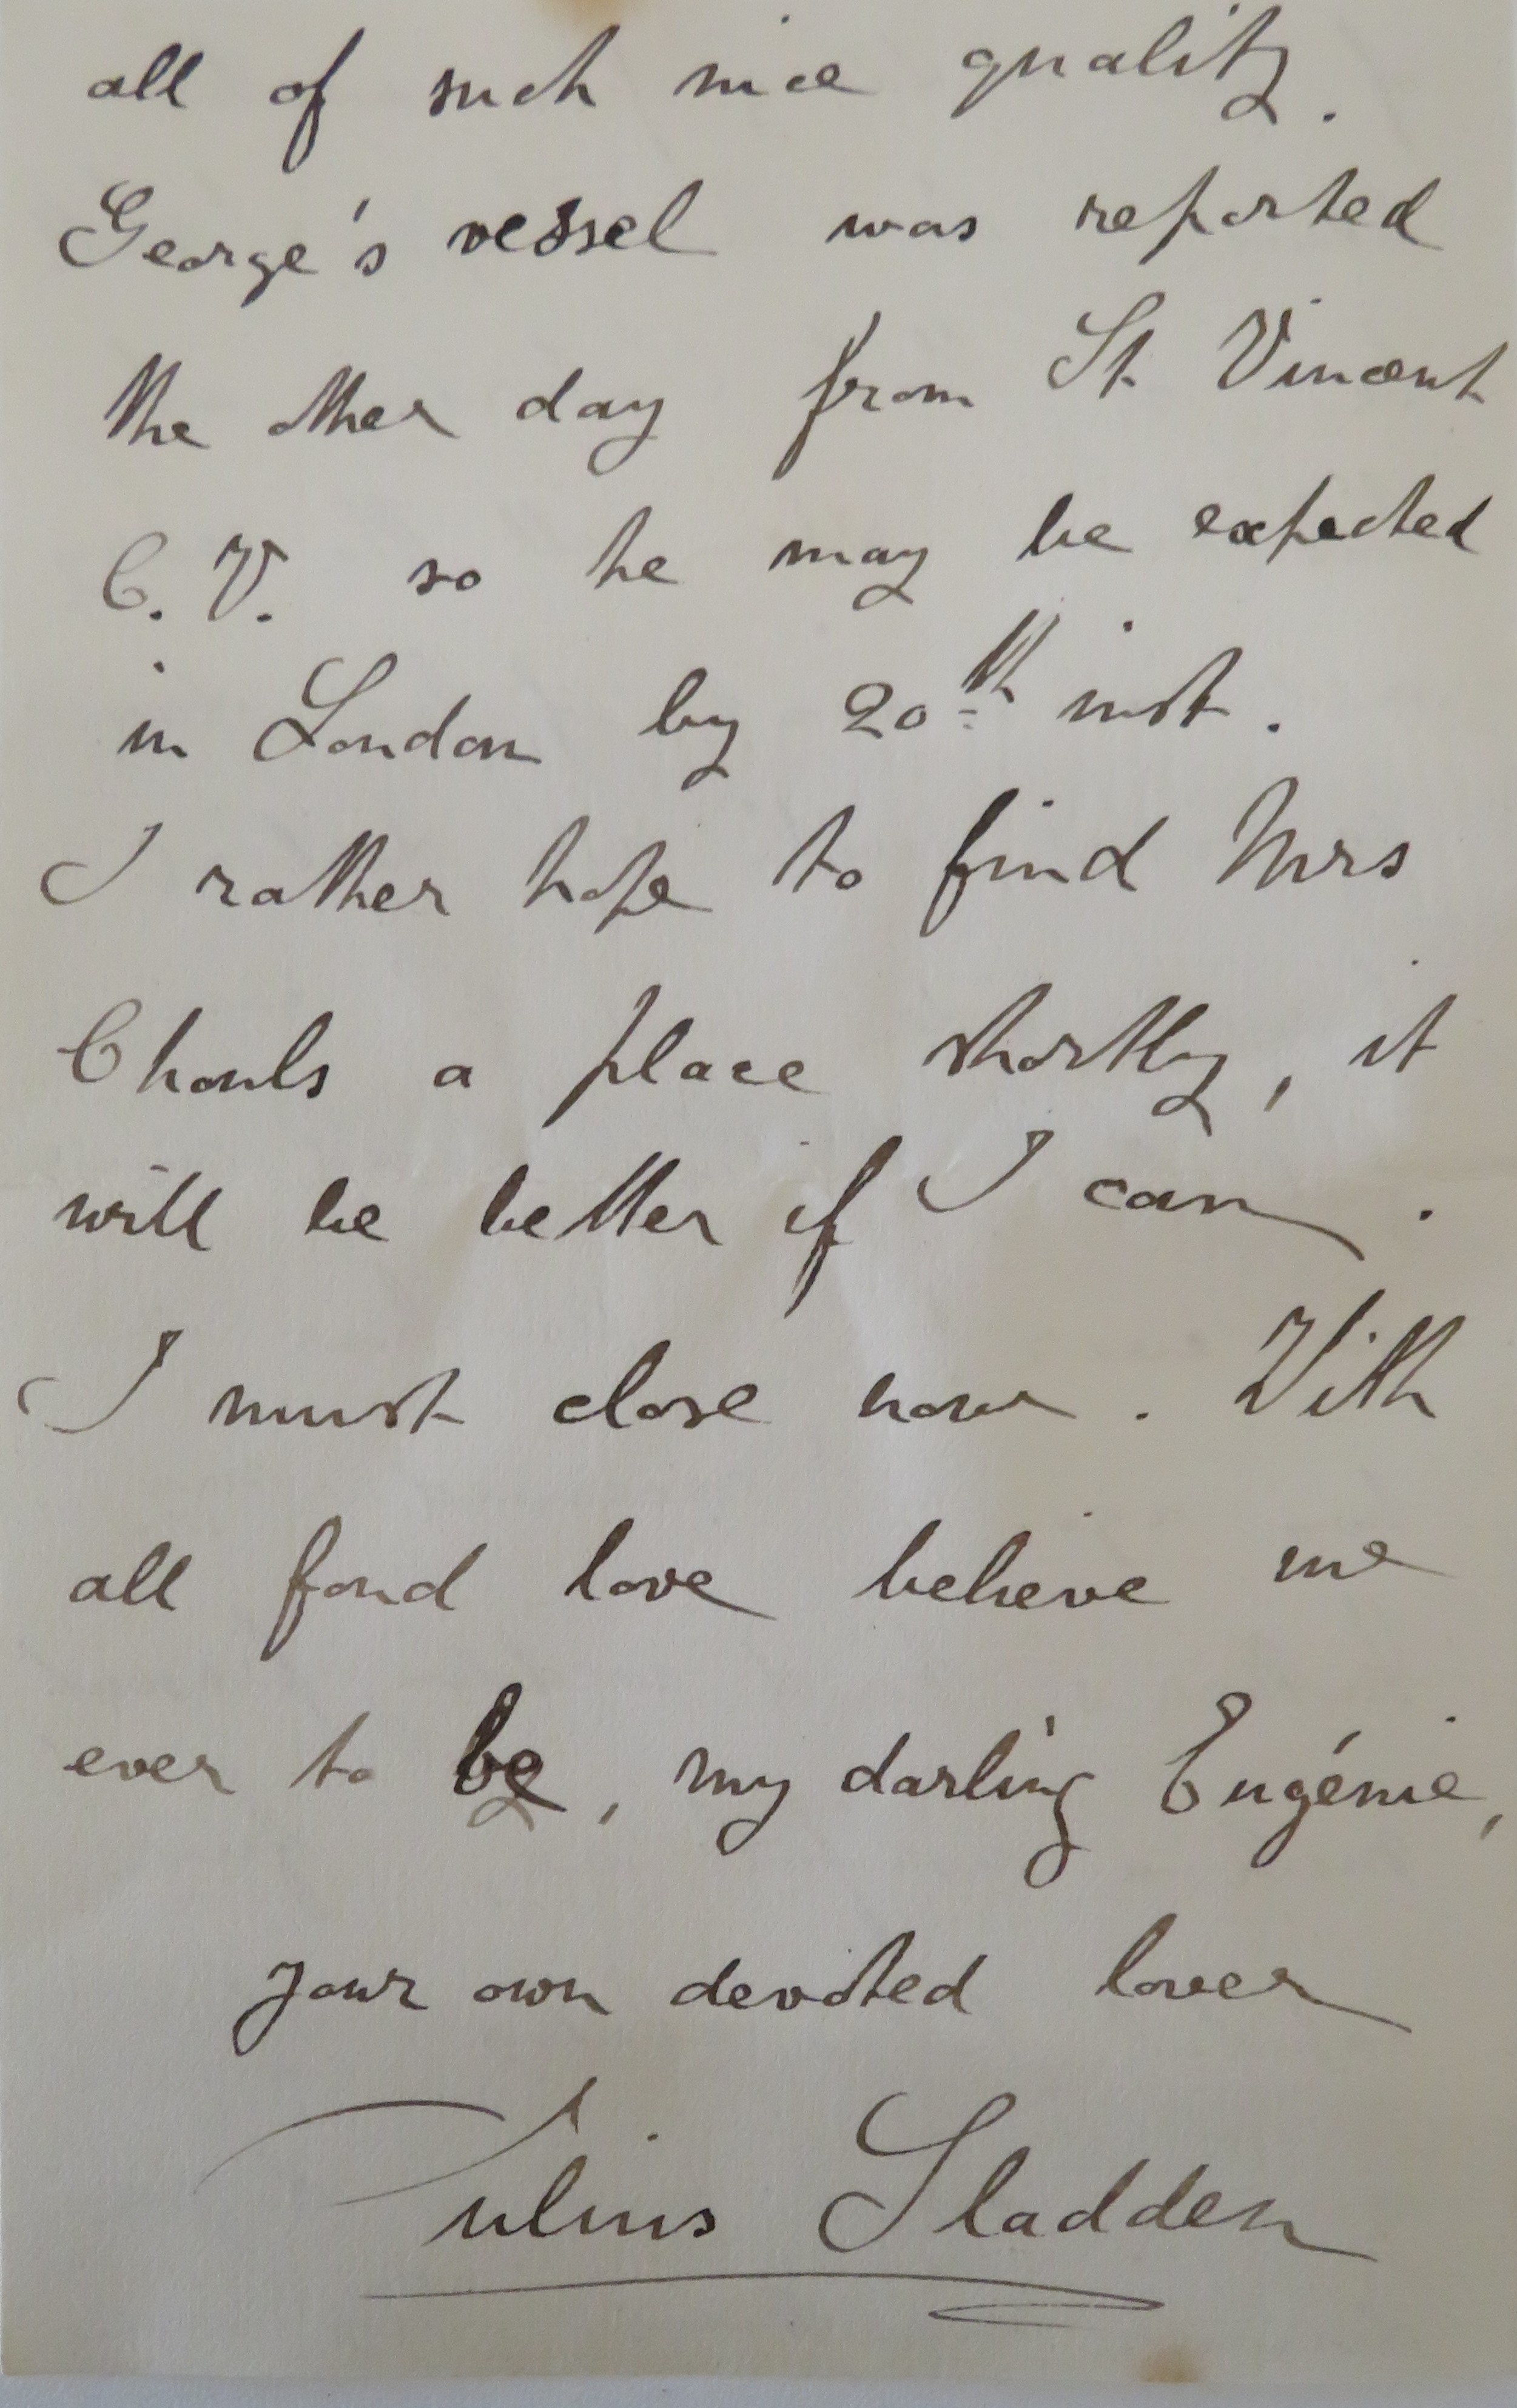 all of such nice quality.
George's vessel was reported
the other day from St. Vincent
C. V. so he may be expected
in London by 20th inst.
I rather hope to find Mrs
Chouls a place shortly, it
will be better if I can.
I must close now. With
all fond love believe me
ever to be, my darling Eugénie,
your own devoted lover
Julius Sladden